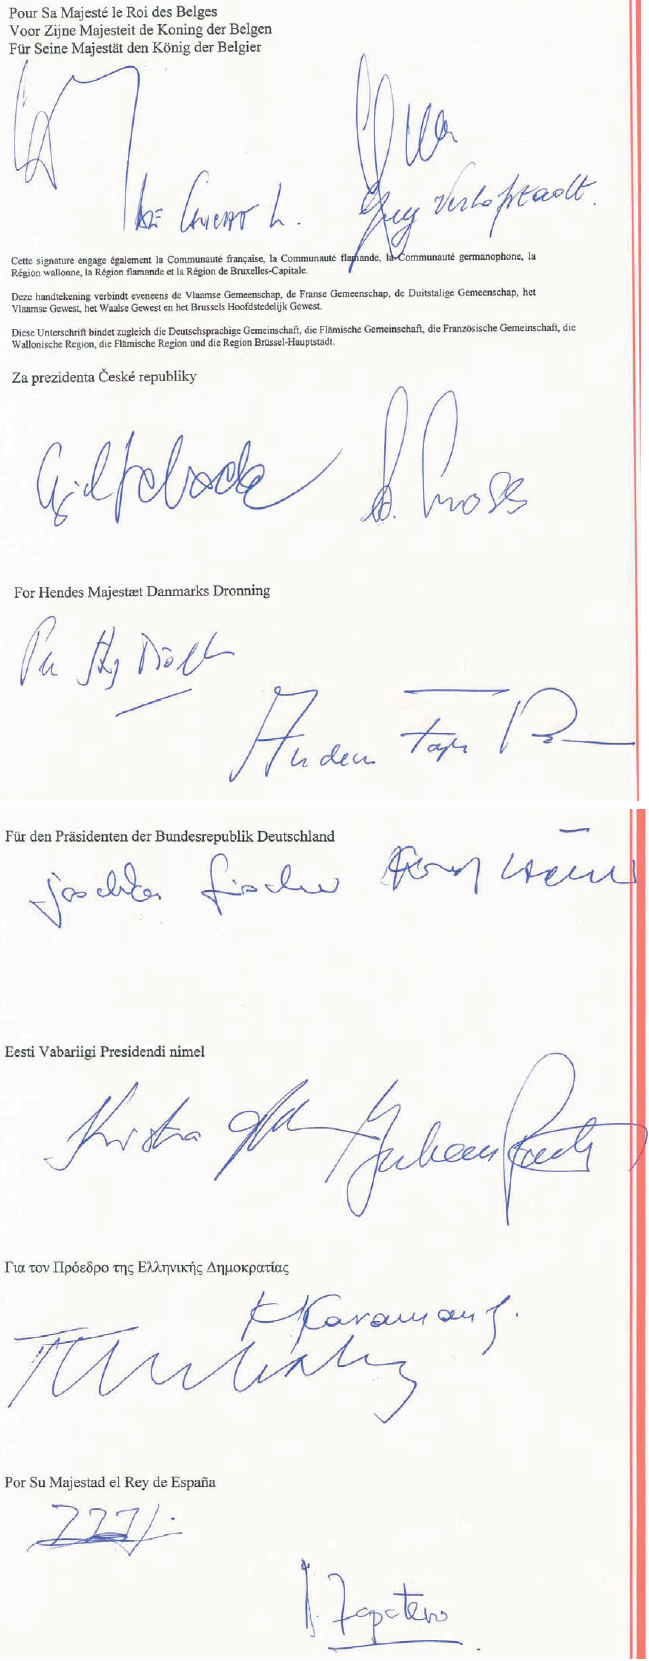 Pour Sa Majesté le Roi des Belges
Voor Zijne Majesteit de Koning der Belgen
Für Seine Majestät den König der Belgier
Guy Verhofstadt.
Cette signature engage également la Communauté française, la Communauté flamande, la Communauté germanophone, la
Région wallonne, la Région flamande et la Région de Bruxelles-Capitale.
Deze handtekening verbindt eveneens de Vlaamse Gemeenschap, de Franse Gemeenschap, de Duitstalige Gemeenschap, het
Vlaamse Gewest, het Waalse Gewest en het Brussels Hoofdstedelijk Gewest.
Diese Unterschrift bindet zugleich die Deutschsprachige Gemeinschaft, die Flämische Gemeinschaft, die Französische Gemeinschaft, die
Wallonische Region, die Flämische Region und die Region Brüssel-Hauptstadt.
Za prezidenta České republiky
For Hendes Majestæt Danmarks Dronning
Für den Präsidenten der Bundesrepublik Deutschland
Joschka Fischer
Eesti Vabariigi Presidendi nimel
Για τον Πρόεδρο της Ελληνικής Δημοκρατίας
Por Su Majestad el Rey de España
Zapatero